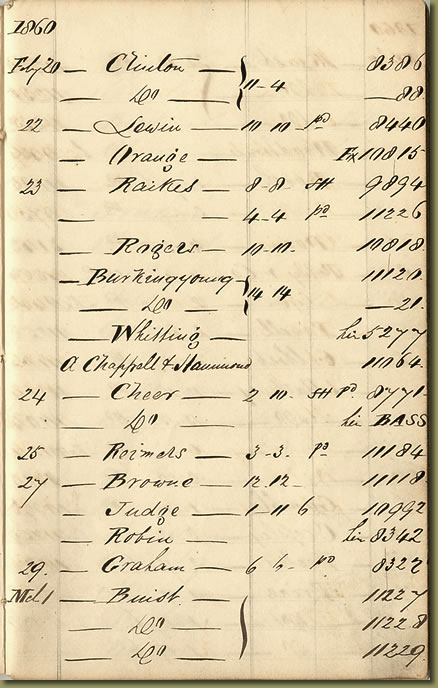 1860
Feby 20 — Clinton — 11-4 8386
— Do — — 88
22 — Lewin — 10 10 pd 8440
— Orange — Ex 10815
23 — Raikes — 8-8- 9894
— — 4-4 pd 11226
— Rogers — 10-10- 10818
— Burkingyoung — 14 14 11120
— Do — — 21
— Whitting — 5277
A Chappell & Hammond 11064
24 — Cheer — 2 10- Pd 8771
— Do — BASS
25 — Reimers — 3-3- pd 11184
27 — Browne — 12-12- 11118
— Judge — 1-11 6 10992
— Robin — 8342
29 — Graham — 6 6- pd 8327
Mch 1 — Buist — 11227
— Do — 11228
— Do — 11229